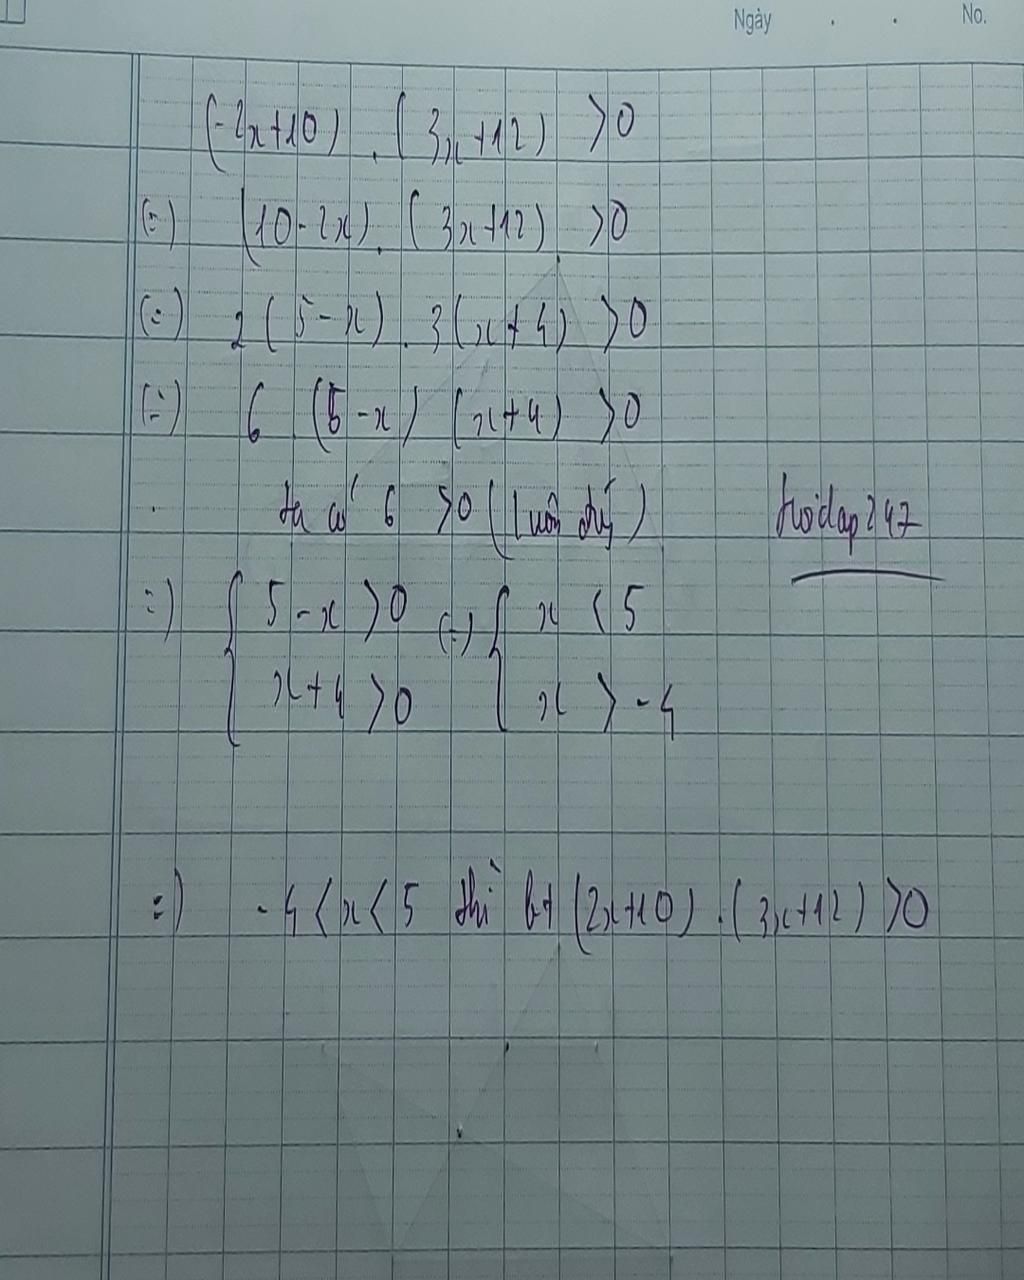 Ngày . . No.
(-2x+10) . (3x+12) >0
(=) (10-2x) . (3x+12) >0
(=) 2(5-x) . 3(x+4) >0
(=) 6 (5-x) (x+4) >0
ta có 6 >0 (luôn đúng) Hoidap247
=) { 5-x >0 (=) { x < 5
x+4 >0 x > -4
=) -4 < x < 5 thì bt (2x+10) . (3x+12) >0